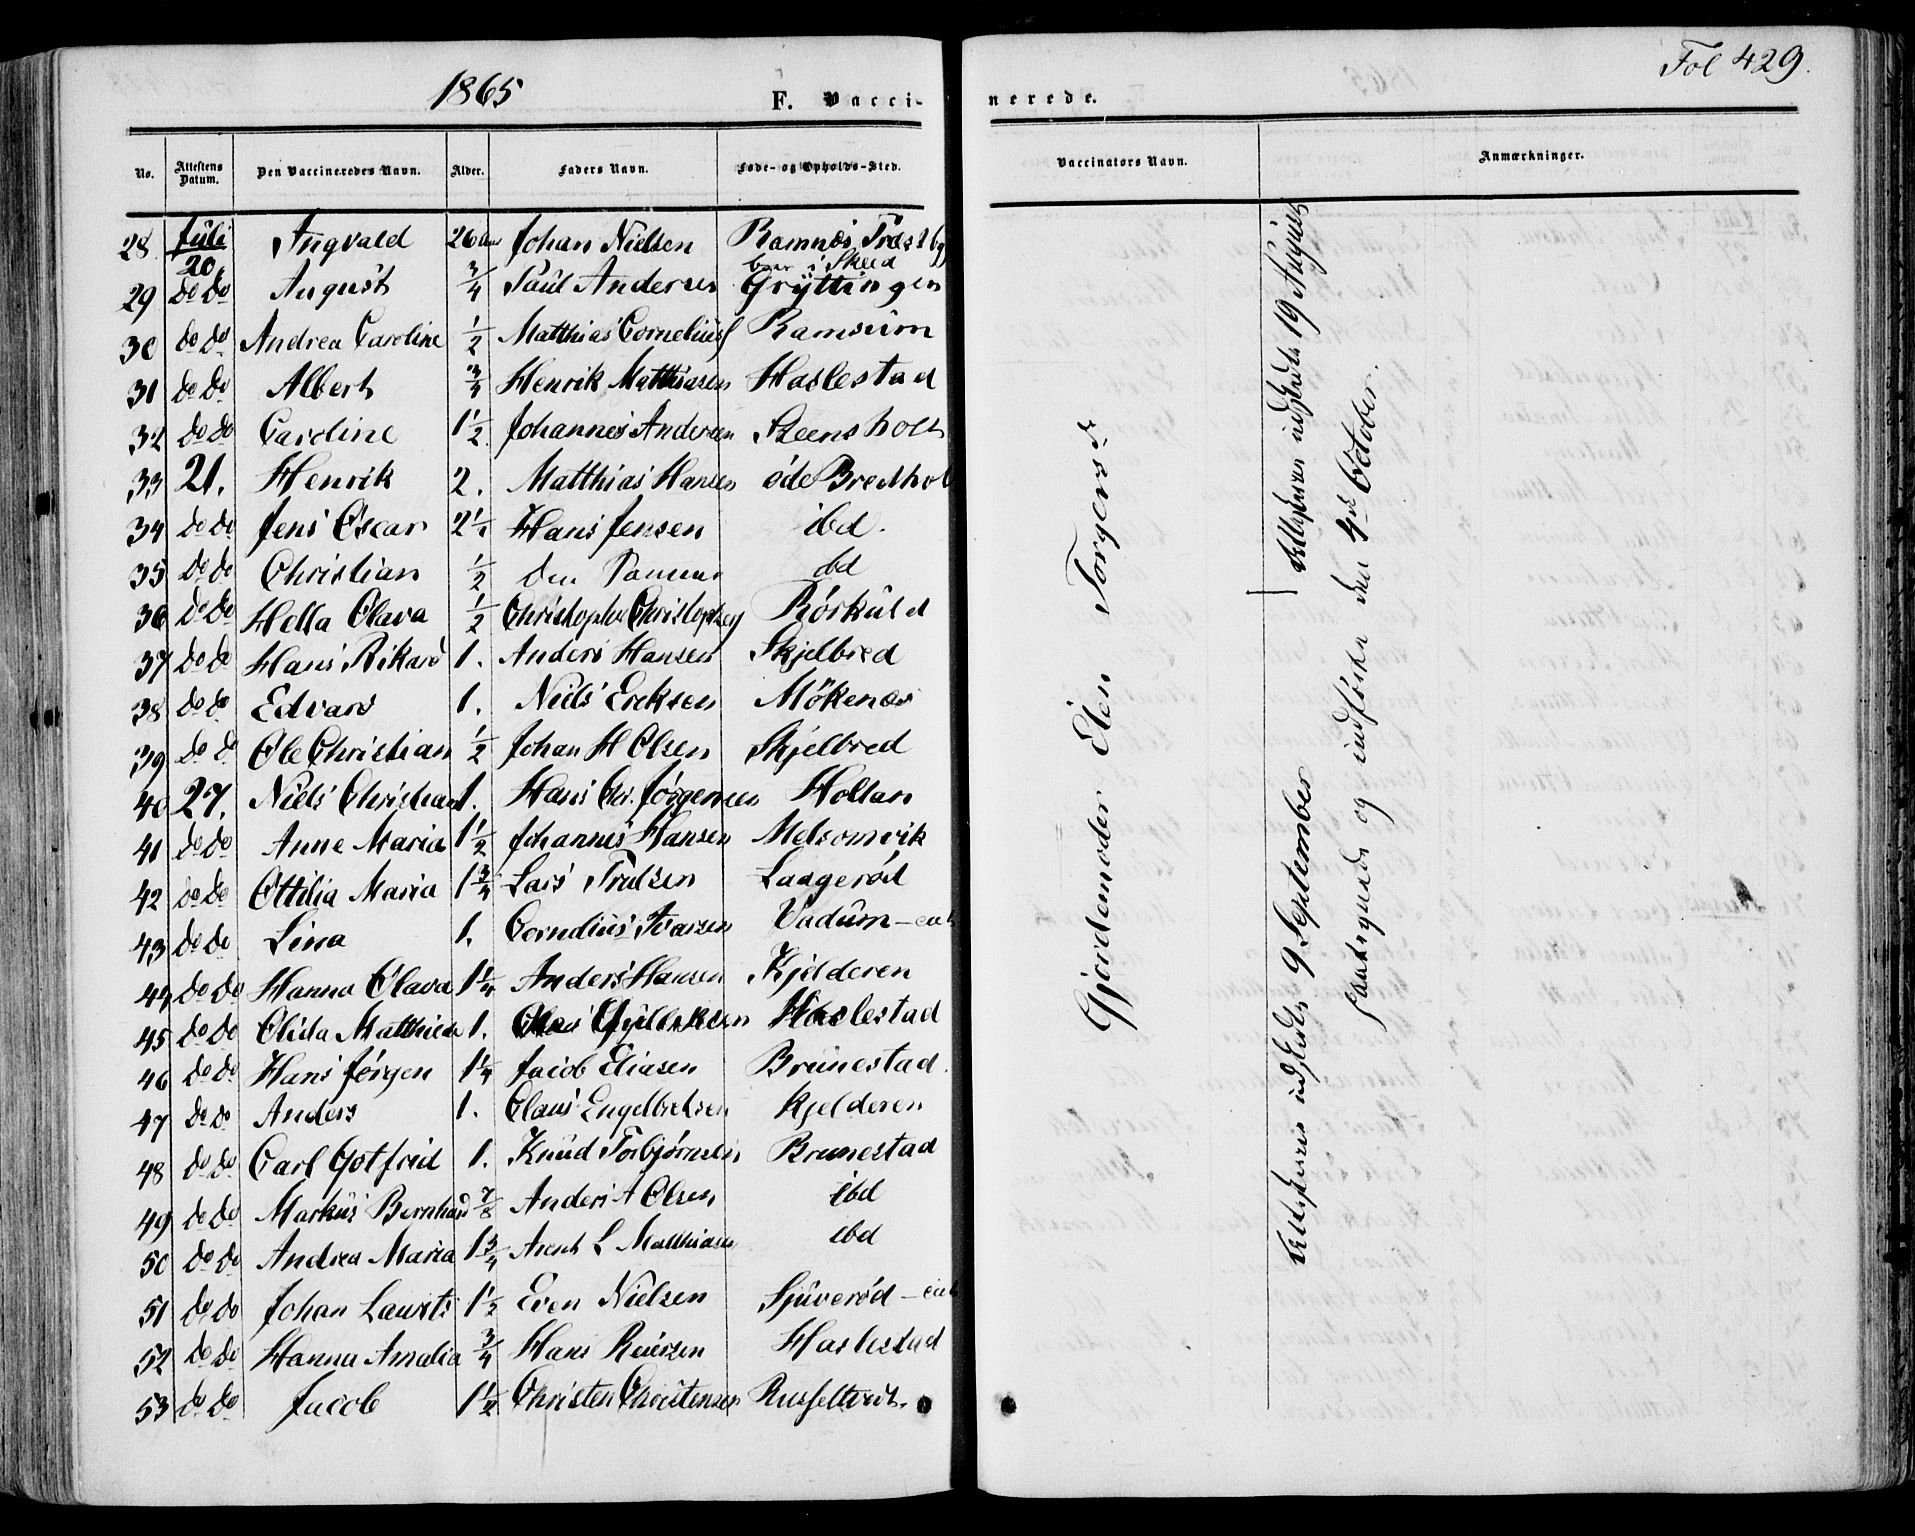 1865
F. Vacci-
nerede.
Fol 429.
No. Attestens Datum. Den Vaccineredes Navn. Alder. Faders Navn. Føde- og Opholds-Sted.
Vaccinators Navn. Anmærkninger.
28 Juli 20. Ingvald 26 Johan Nielsen Ramnæs
i Skeed
29 do do August 3/4 Paul Andersen Gryttingen
30 do do Andrea Caroline 1/2 Matthias Cornelius Ramsum
31 do do Albert 3/4 Henrik Matthiasen Haslestad
32 do do Caroline 1 1/2 Johannes Andersen Steensholt
33 21. Henrik 2. Matthias Hansen øde Bredhol
34 do do Jens Oscar 2 1/4 Hans Jensen ibd.
35 do do Christian 1/2 den samme ibd
36 do do Hella Olava 1/2 Christopher Rørkuld
37 do do Hans Rikard 1. Anders Hansen Skjelbred
38 do do Edvard 1. Niels Eriksen Møkenæs
39 do do Ole Christian 1/2 Johan H Olsen Skjelbred
40 27. Niels Christian 1. Hans Chr. Jørgensen Holtan
41 do do Anne Maria 1 1/2 Johannes Hansen Melsomvik
42 do do Ottilia Maria 1 3/4 Lars Trulsen Laagerød
43 do do Lina 1. Cornelius Ivarsen Vadum
44 do do Hanna Olava 1 1/4 Anders Hansen Kjelderen
45 do do Olida Matthilda 1. Haslestad
46 do do Hans Jørgen 1 1/4 Jacob Eliasen Brunestad.
47 do do Anders 1. Claus Engelbretsen Kjelderen
48 do do Carl Gotfried 1. Knud Torbjørnsen Brunestad
49 do do Markus Bernhard 7/8 Anders A Olsen ibd
50 do do Andrea Maria 1 3/4 Arent L Matthiasen ibd
51 do do Johan Laurits 1 1/2 Even Nielsen Sjuverød
52 do do Hanna Amalia 3/4 Hans Reiersen Haslestad
53 do do Jacob 1 1/2 Christen Christensen Russeltvedt.
Gjordemoder Elen Torgersd
Attesterne indsendte 19 August
Attesterne indsendte 9 September
og indførte den 4de October.